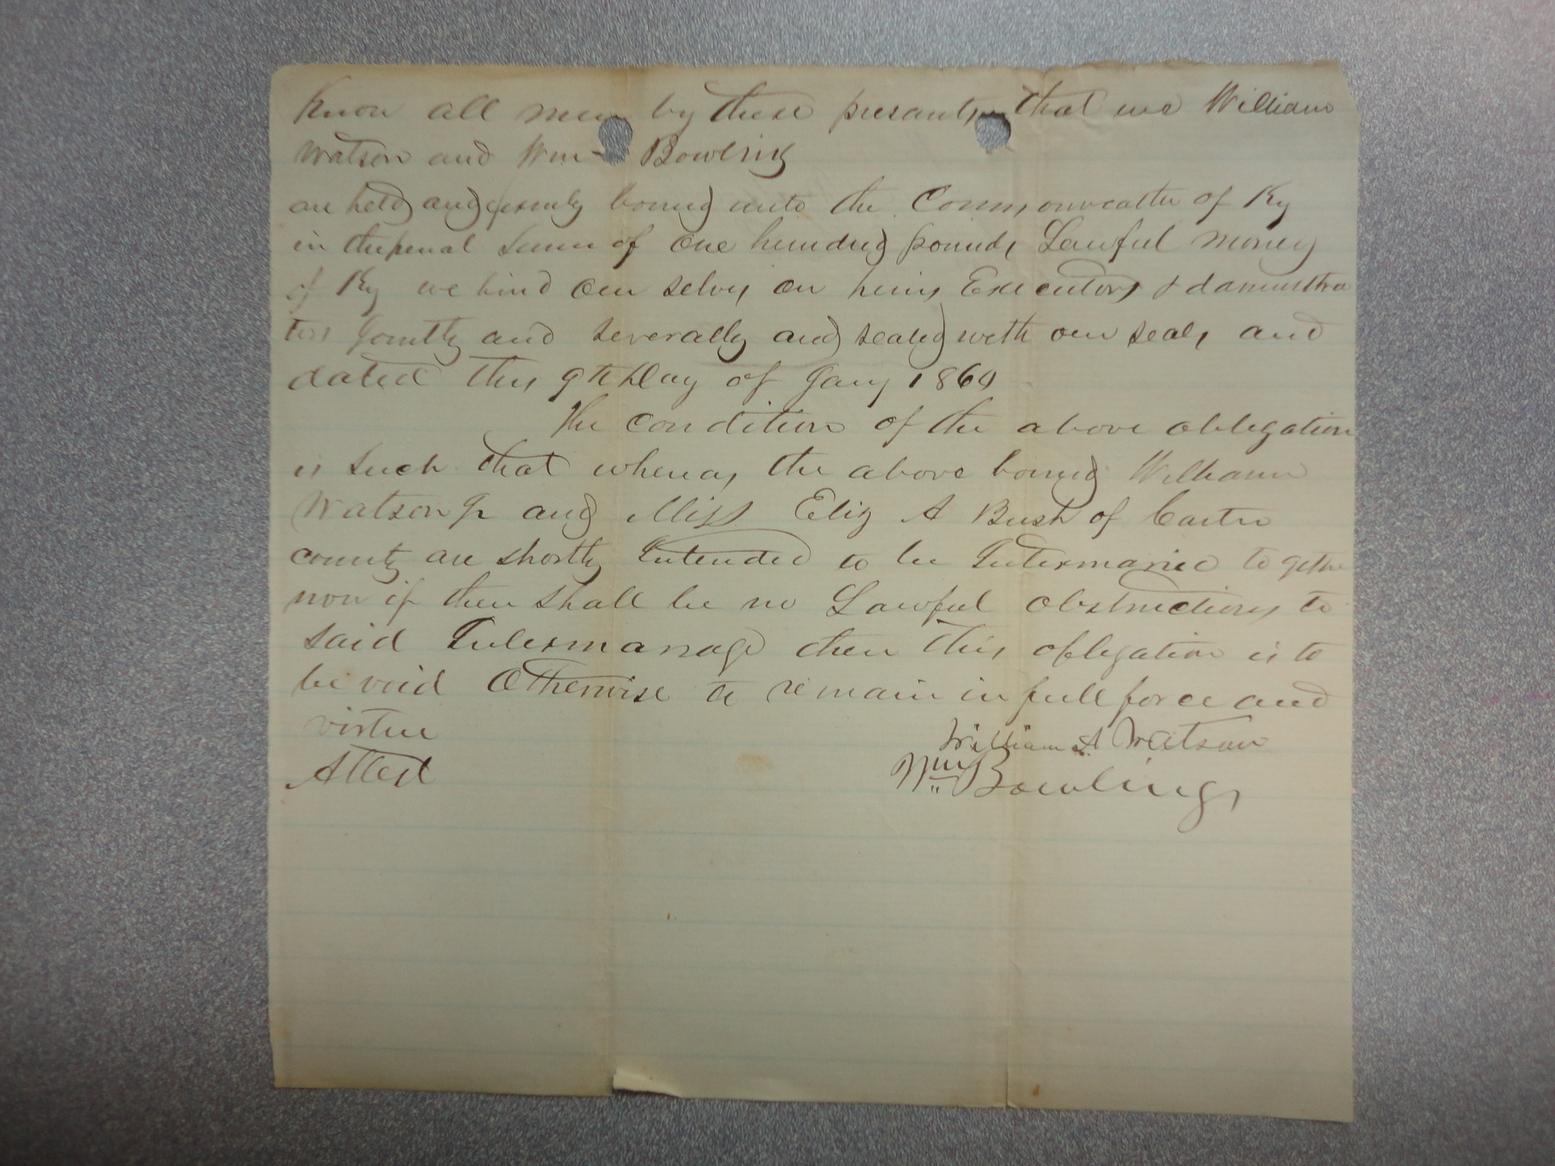 Know all men by these presants that we William
Watson and Wm Bowling
are held and firmly bound unto the Commonwealth of Ky
in the penal Sum of One hundred pounds Lawful money
of Ky we bind our selvs our heirs Executors & damanistra
tors Jointly and severally and sealed with our seals and
dated this 9th Day of Jany 1860
The condition of the above obligation
is Such that whereas the above bound William
Watson Jr and Miss Eliz A Bush of Carter
county are shortly Intended to be Intermaried to gether
now if there Shall be no Lawful obstructions to
said Intermarrage then this obligation is to
be void Otherwise to remain in full force and
virtue
William A Watson
Attest
Wm Bowling